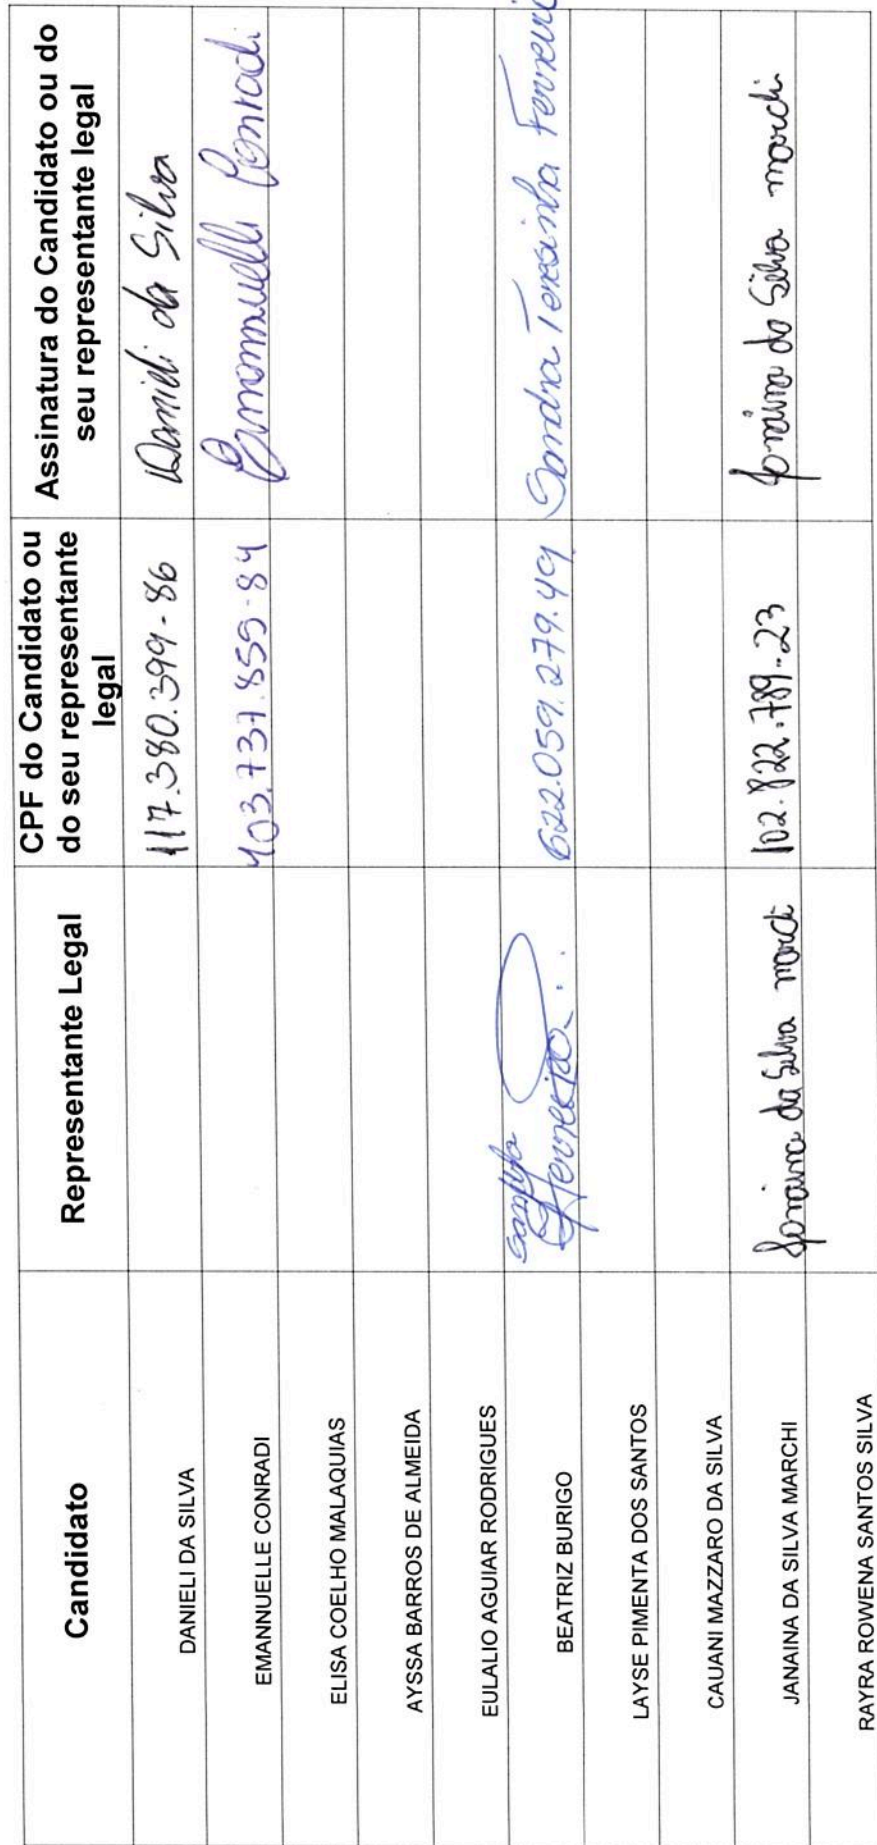 Candidato
Representante Legal
CPF do Candidato ou
do seu representante
legal
Assinatura do Candidato ou do
seu representante legal
DANIELI DA SILVA
117.380.399-86
Danieli da Silva
EMANNUELLE CONRADI
103.737.859-84
Emannuelli Conradi
ELISA COELHO MALAQUIAS
AYSSA BARROS DE ALMEIDA
EULALIO AGUIAR RODRIGUES
BEATRIZ BURIGO
622.059.279.49
Sandra Teresinha Ferreira
LAYSE PIMENTA DOS SANTOS
CAUANI MAZZARO DA SILVA
JANAINA DA SILVA MARCHI
Janaina da Silva marchi
102.822.789-23
Janaina da Silva marchi
RAYRA ROWENA SANTOS SILVA